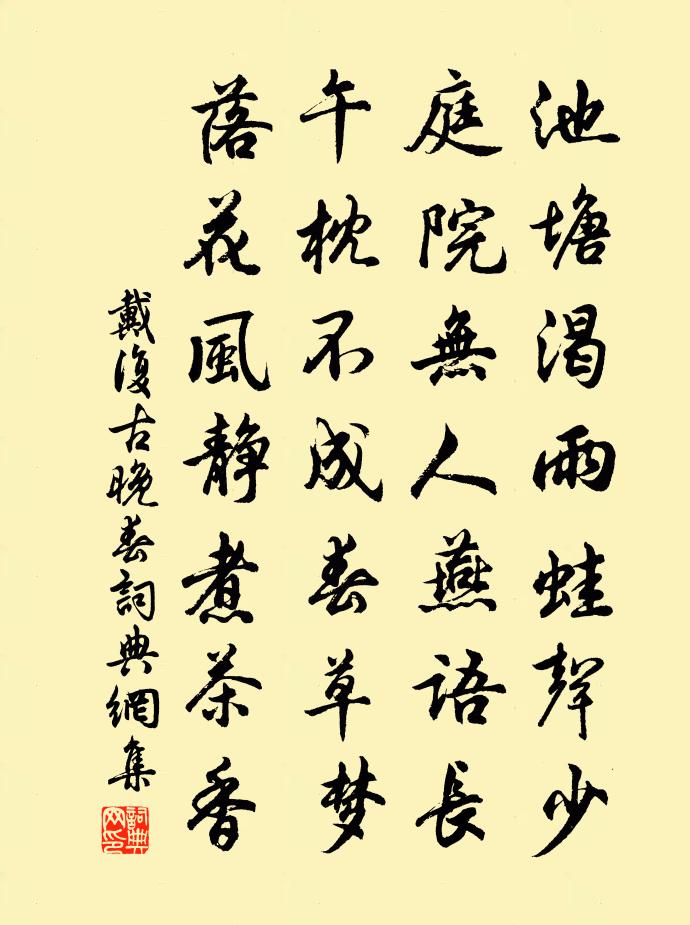 池塘渴雨蛙聲少
庭院無人燕語長
午枕不成春草梦
落花風静煮茶香
戴復古晚春詞典網集
詞典网印